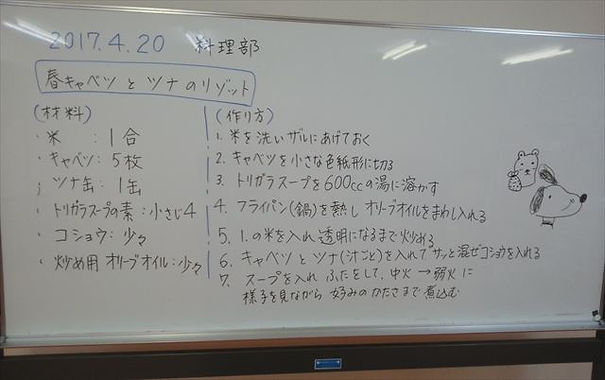 2017.4.20 料理部
春キャベツ と ツナ の リゾット
(材料)
・米 : 1合
・キャベツ : 5枚
・ツナ缶 : 1缶
・トリガラスープの素 : 小さじ4
・コショウ : 少々
・炒め用 オリーブオイル : 少々
(作り方)
1. 米を洗いザルにあげておく
2. キャベツを小さな色紙形に切る
3. トリガラスープを600ccの湯に溶かす
4. フライパン(鍋)を熱し オリーブオイルをまわし入れる
5. 1.の米を入れ透明になるまで炒める
6. キャベツ と ツナ(汁ごと)を入れて サッと混ぜコショウを入れる
7. スープを入れ ふたをして、中火 → 弱火 に
様子を見ながら 好みのかたさまで 煮込む